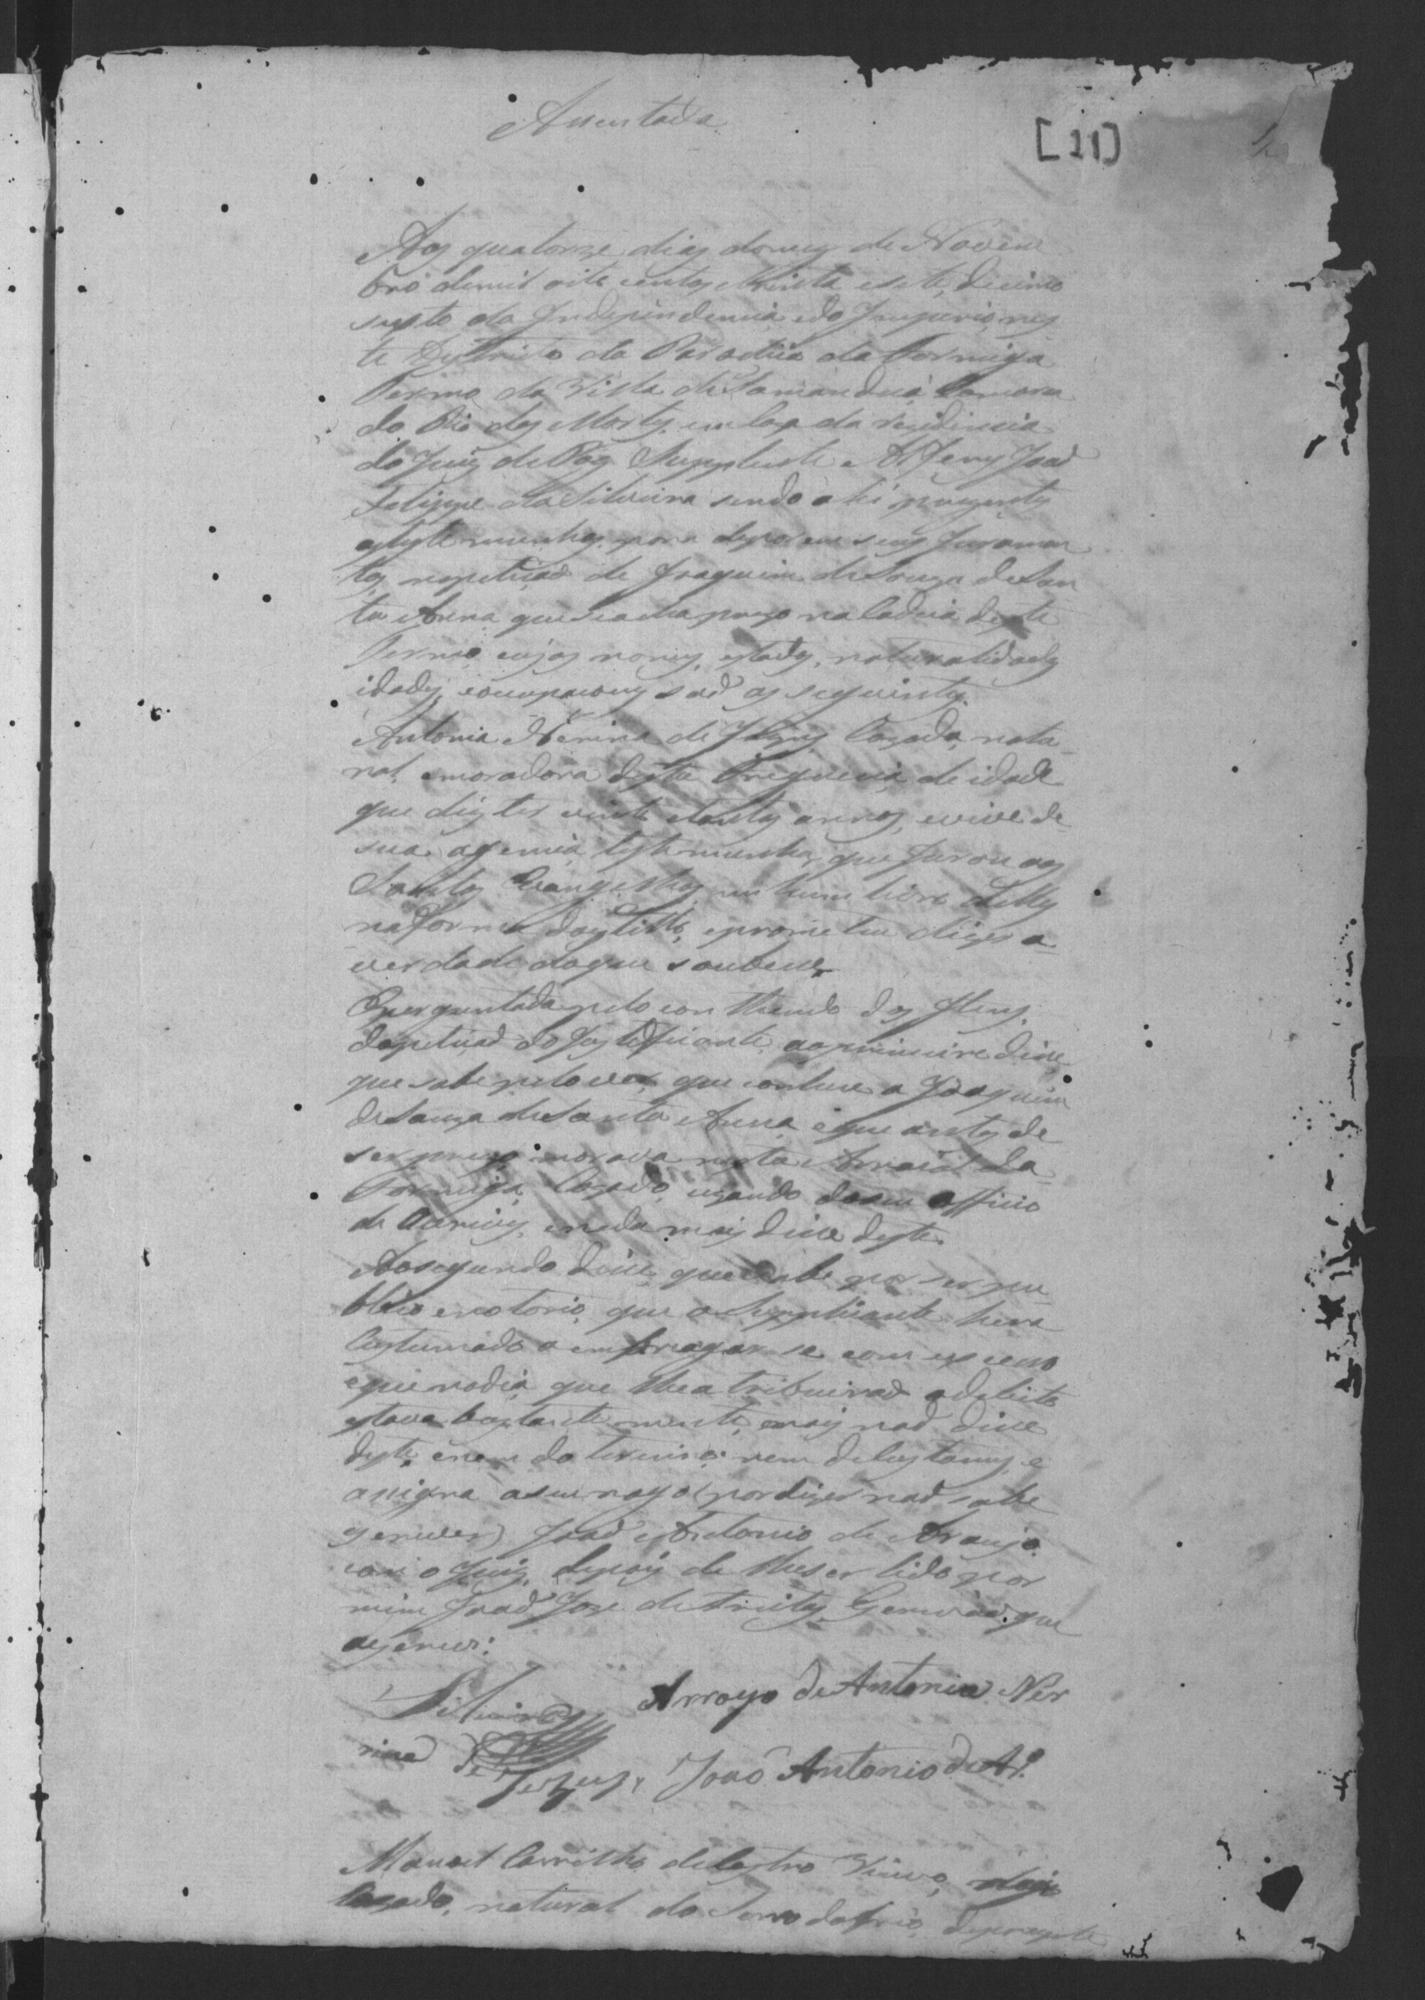 Assentada
[11]
Aos quatorze dias domez de Novem
bro demil oito centos etrinta esete, decimo
sexto da Independencia, edo Imperio, nes
te Destricto da Parochia da Formiga
Termo da Villa de Tamanduá Comarca
do Rio das Mortes, em Caza da rezidencia
do Juiz de Paz Supplente Alferes Joaõ
Felippe da Silveira sendo ahi prezentes
astestemunhas para deporem seus Juramen
tos napetiçaõ de Joaquim de Souza de San
ta Anna queseacha prezo naCadeia deste
Termo, cujos nomes, estados, naturalidades
idades, eocupacoens saõ as seguintes.
Antonia Nerina de Jezus Cazada, natu-
ral, emoradora desta Freguezia, de idade
que dis ter vinte etantos annos, evive de
sua agencia, testemunha, que Jurou aos
Santos Evangelhos em hum livro delles
naforma doestillo, eprometeu dizer a
verdade doque soubece
Eperguntada pelo contheudo dos Itens
dapetiçaõ do Justificante, aoprimeiro dice
que sabe pelo ver, que conhece a Joaquim
deSouza deSanta Anna, eque antes de
ser prezo morava neste Arraial da
Formiga, Cazado, uzando doseu Officio
de Ourives, enada mais dice deste.
Aosegundo dice, que sabe por ser pu
blico enotorio, que o Supplicante hera
Custumado a embriagar-se com excesso
eque nodia, que lhe atribuiraõ odelicto
estava bastantemente, emais naõ dice
deste, enem do terceiro, nem de Custumes, e
asigna aseu rogo (por dizer naõ sabe
escrever) Joaõ Antonio de Araujo
com o Juiz, depois de lheser lido por
mim Joaõ Joze de Freitas Escrivaõ que
oescrevi:
Silveira Arrogo de Antonia Ner
rina de Jezus, Joaõ Antonio de Ar.º
Manoel Carrilho deCastro Viuvo, digo
Cazado, natural do Serro doFrio,